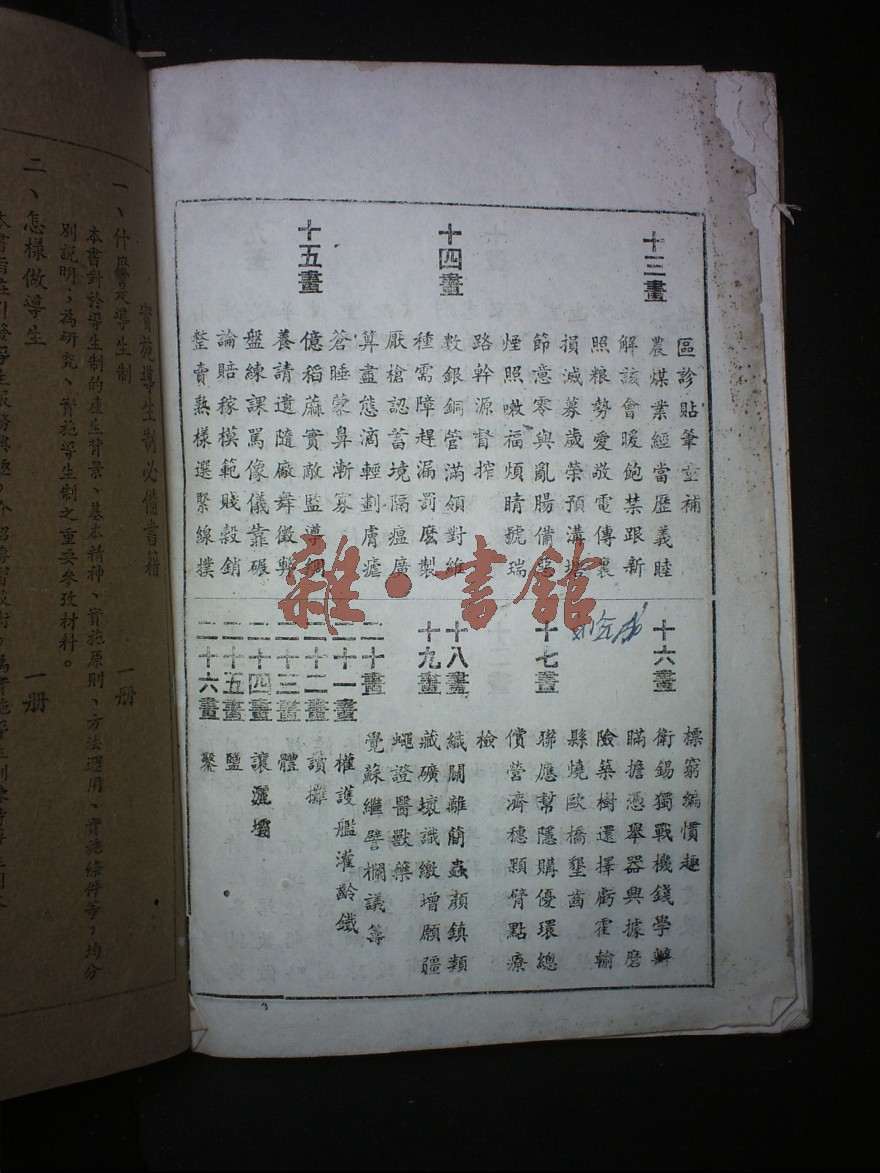 十三畫
區診貼筆童補
農煤業經當歷義睦
解該會暖飽禁跟新
照粮勢愛敬電傳裏
損滅募歲榮預溝塔
節意零與亂腸備
煙照嗽福煩睛號瑞
路幹源督搾
十四畫
數銀銅管滿領對維
種需障趕漏罰麽製
厭槍認蓄境隔瘟廣
算盡態滴輕劃膚瘧
蒼睡蒙鼻漸寡
十五畫
億稻蔴實敵監導綢
養請遺隨廠舞徵弊
盤練課罵像儀靠碾
論賠稼模範賤穀銷
整賣熟樣選緊線撲
標窮編慣趣
十六畫
衛錫獨戰機錢學辦
瞞擔憑舉器興據磨
險築樹還擇虧霍輸
縣燒歐橋墾齒
十七畫
聯應幫隱購優環總
償營濟穗顆臂點療
檢
十八畫
織關離簡蟲顏鎮類
十九畫
藏礦壞識繳增願疆
蠅證醫獸藥
二十畫
覺蘇繼譬欄議籌
二十一畫
權護艦灌齡鐵
二十二畫
讀攤
二十三畫
體
二十四畫
讓灑壩
二十五畫
鹽
二十六畫
雜·書館
實施導生制必備書籍
一、什麼是導生制 一册
本書對於導生制的產生背景、基本精神、實施原則、方法運用、實施條件等，均分
別説明；為研究、實施導生制之重要參攷材料。
二、怎樣做導生 一册